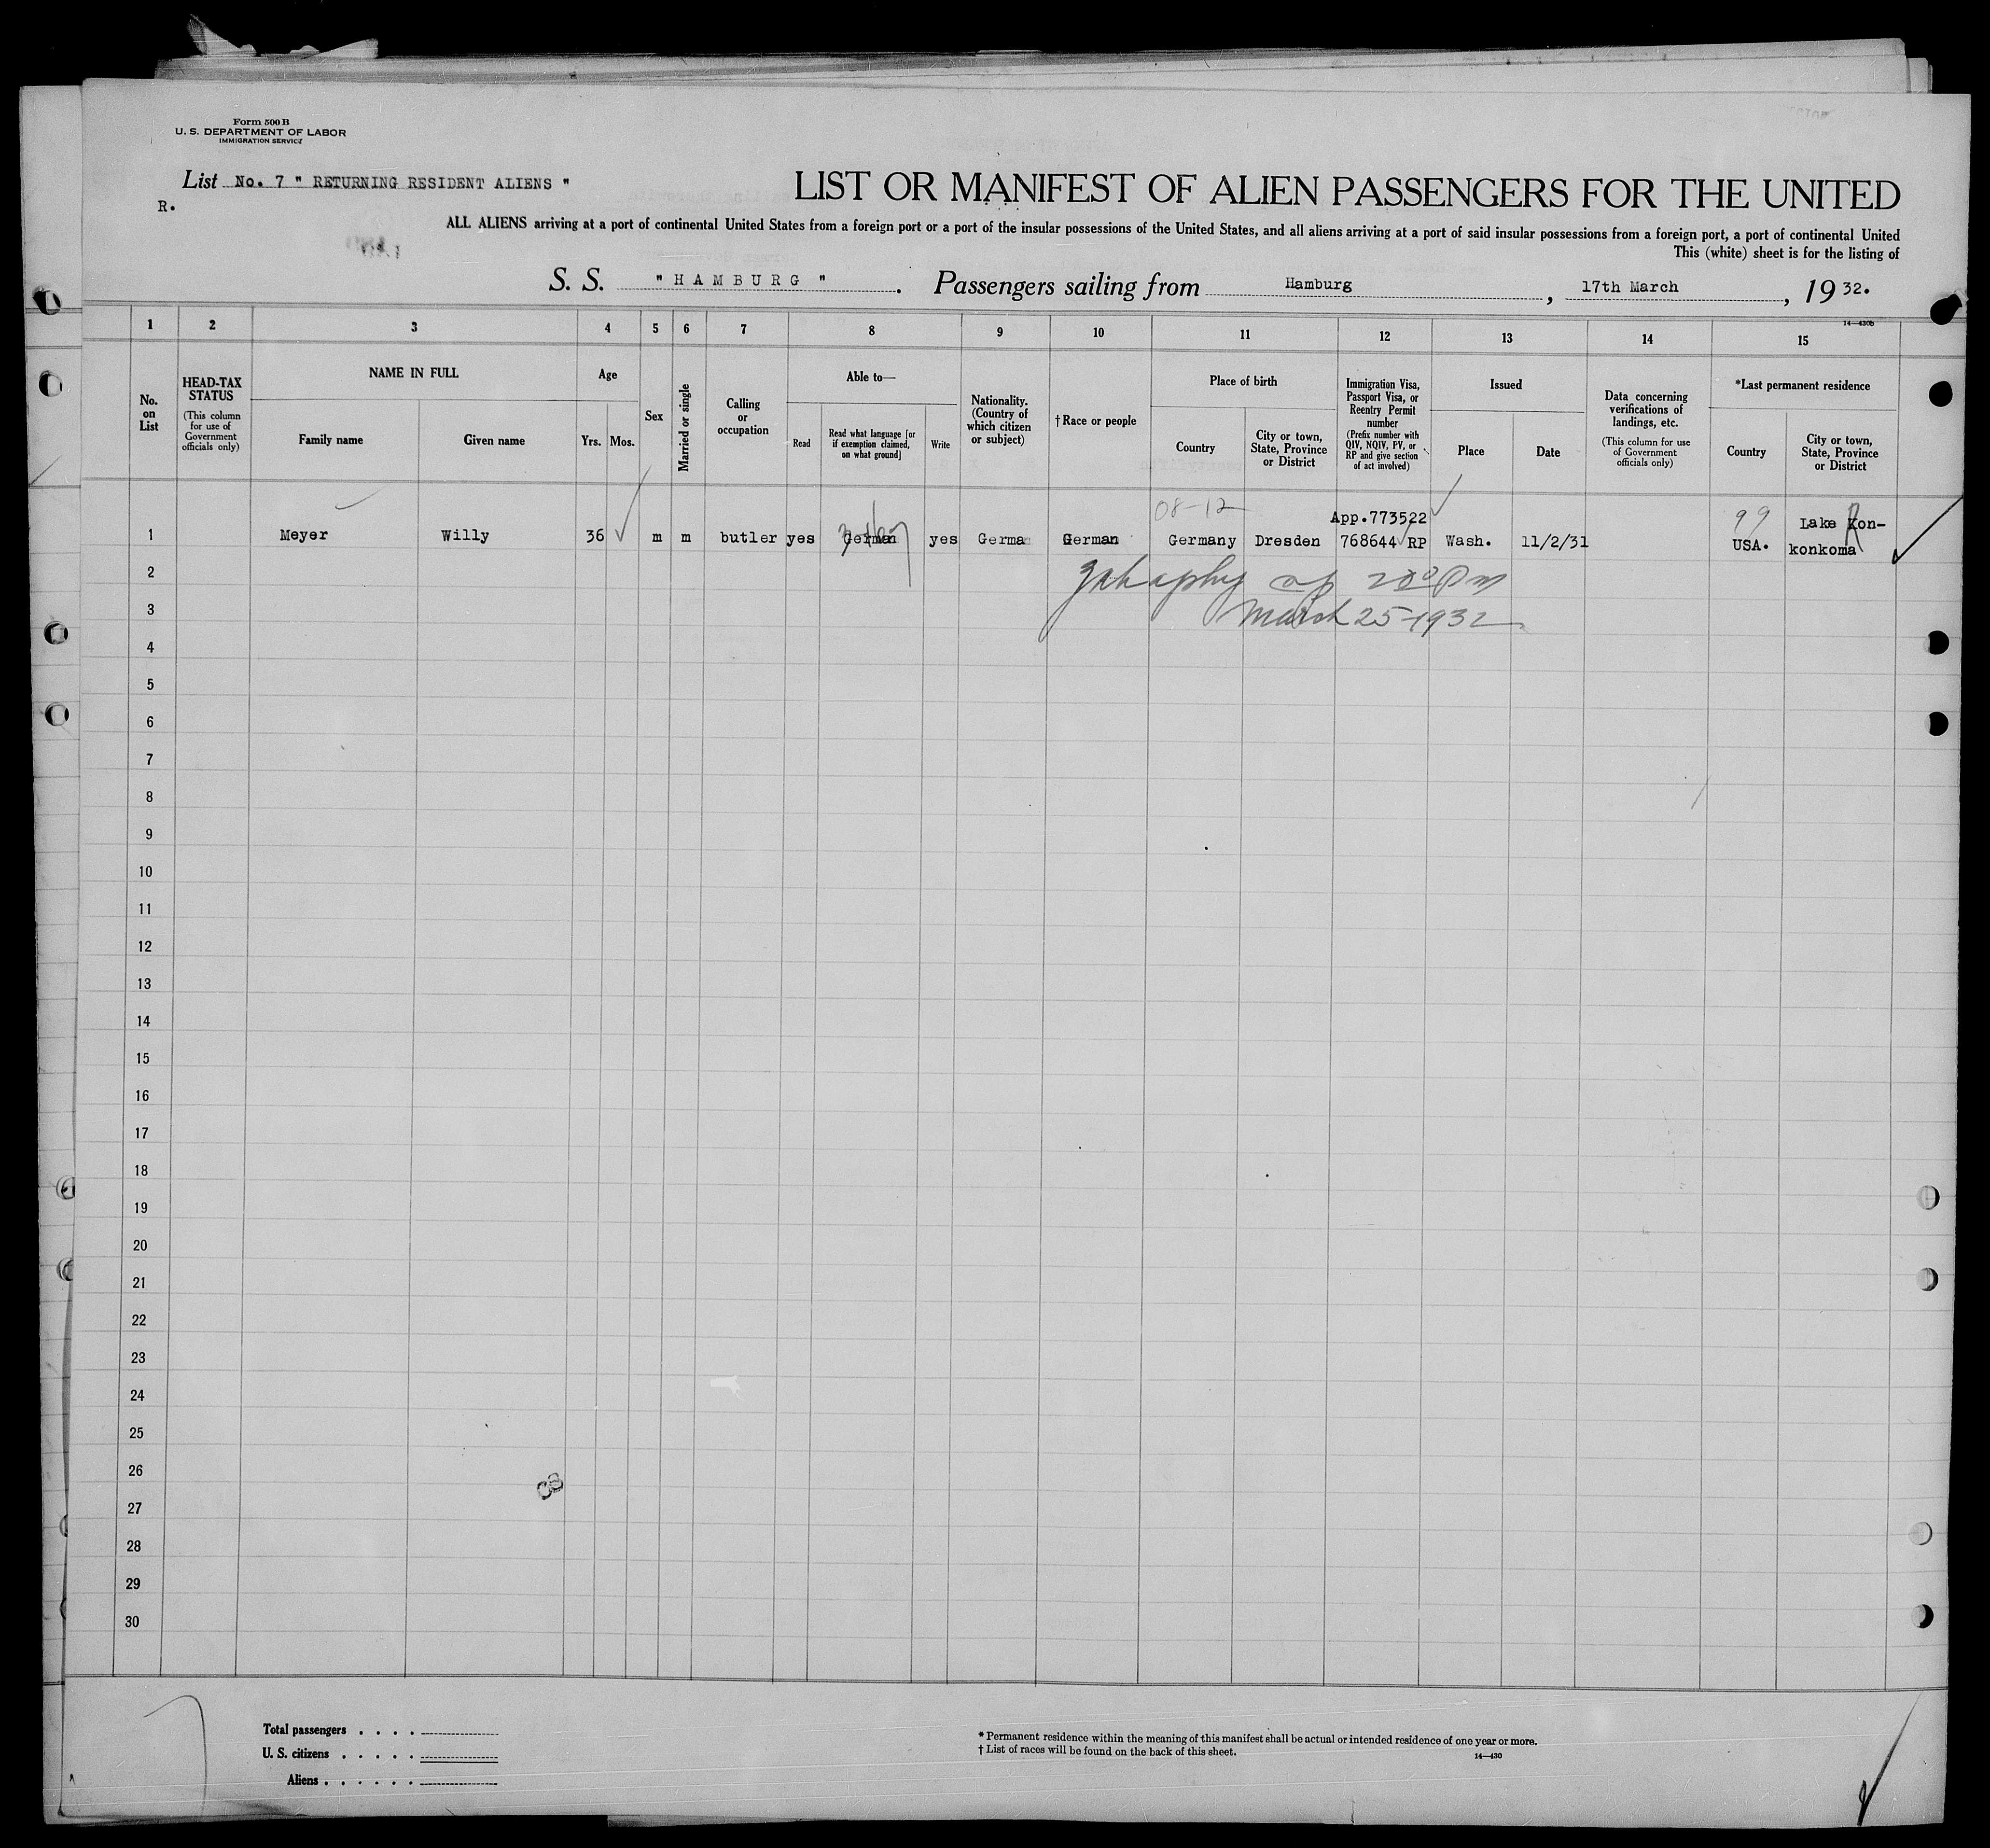 Form 500 B
U. S. DEPARTMENT OF LABOR
IMMIGRATION SERVICE
List No. 7 " RETURNING RESIDENT ALIENS "
R.
LIST OR MANIFEST OF ALIEN PASSENGERS FOR THE UNITED
ALL ALIENS arriving at a port of continental United States from a foreign port or a port of the insular possessions of the United States, and all aliens arriving at a port of said insular possessions from a foreign port, a port of continental United
This (white) sheet is for the listing of
S. S. " H A M B U R G " . Passengers sailing from Hamburg , 17th March , 19 32.
14—430b
1 2 3 4 5 6 7 8 9 10 11 12 13 14 15
No. on List
HEAD-TAX STATUS
(This column for use of Government officials only)
NAME IN FULL
Family name
Given name
Age
Yrs. Mos.
Sex
Married or single
Calling or occupation
Able to—
Read
Read what language [or if exemption claimed, on what ground]
Write
Nationality. (Country of which citizen or subject)
† Race or people
Place of birth
Country
City or town, State, Province or District
Immigration Visa, Passport Visa, or Reentry Permit number
(Prefix number with QIV, NQIV, PV, or RP and give section of act involved)
Issued
Place
Date
Data concerning verifications of landings, etc.
(This column for use of Government officials only)
*Last permanent residence
Country
City or town, State, Province or District
08-12
App.773522
99
Lake Kon-
1 Meyer Willy 36 m m butler yes German yes German German Germany Dresden 768644 RP Wash. 11/2/31 USA. konkoma
R
2
March 25-1932
3
4
5
6
7
8
9
10
11
12
13
14
15
16
17
18
19
20
21
22
23
24
25
26
27
28
29
30
Total passengers . . . .
U. S. citizens . . . . .
Aliens . . . . . .
* Permanent residence within the meaning of this manifest shall be actual or intended residence of one year or more.
† List of races will be found on the back of this sheet.
14—430